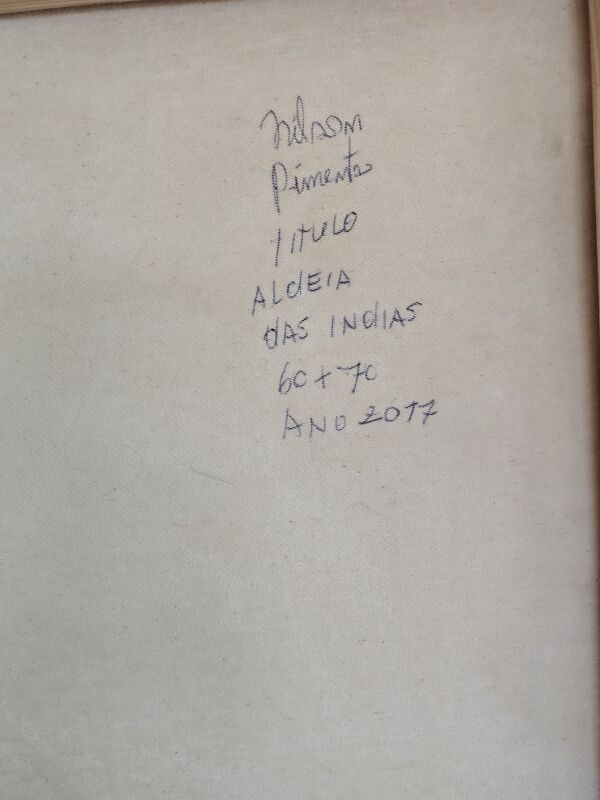 Nilson
Pimenta
TITULO
ALdEIA
dAS INdIAS
60 + 70
ANO 2017